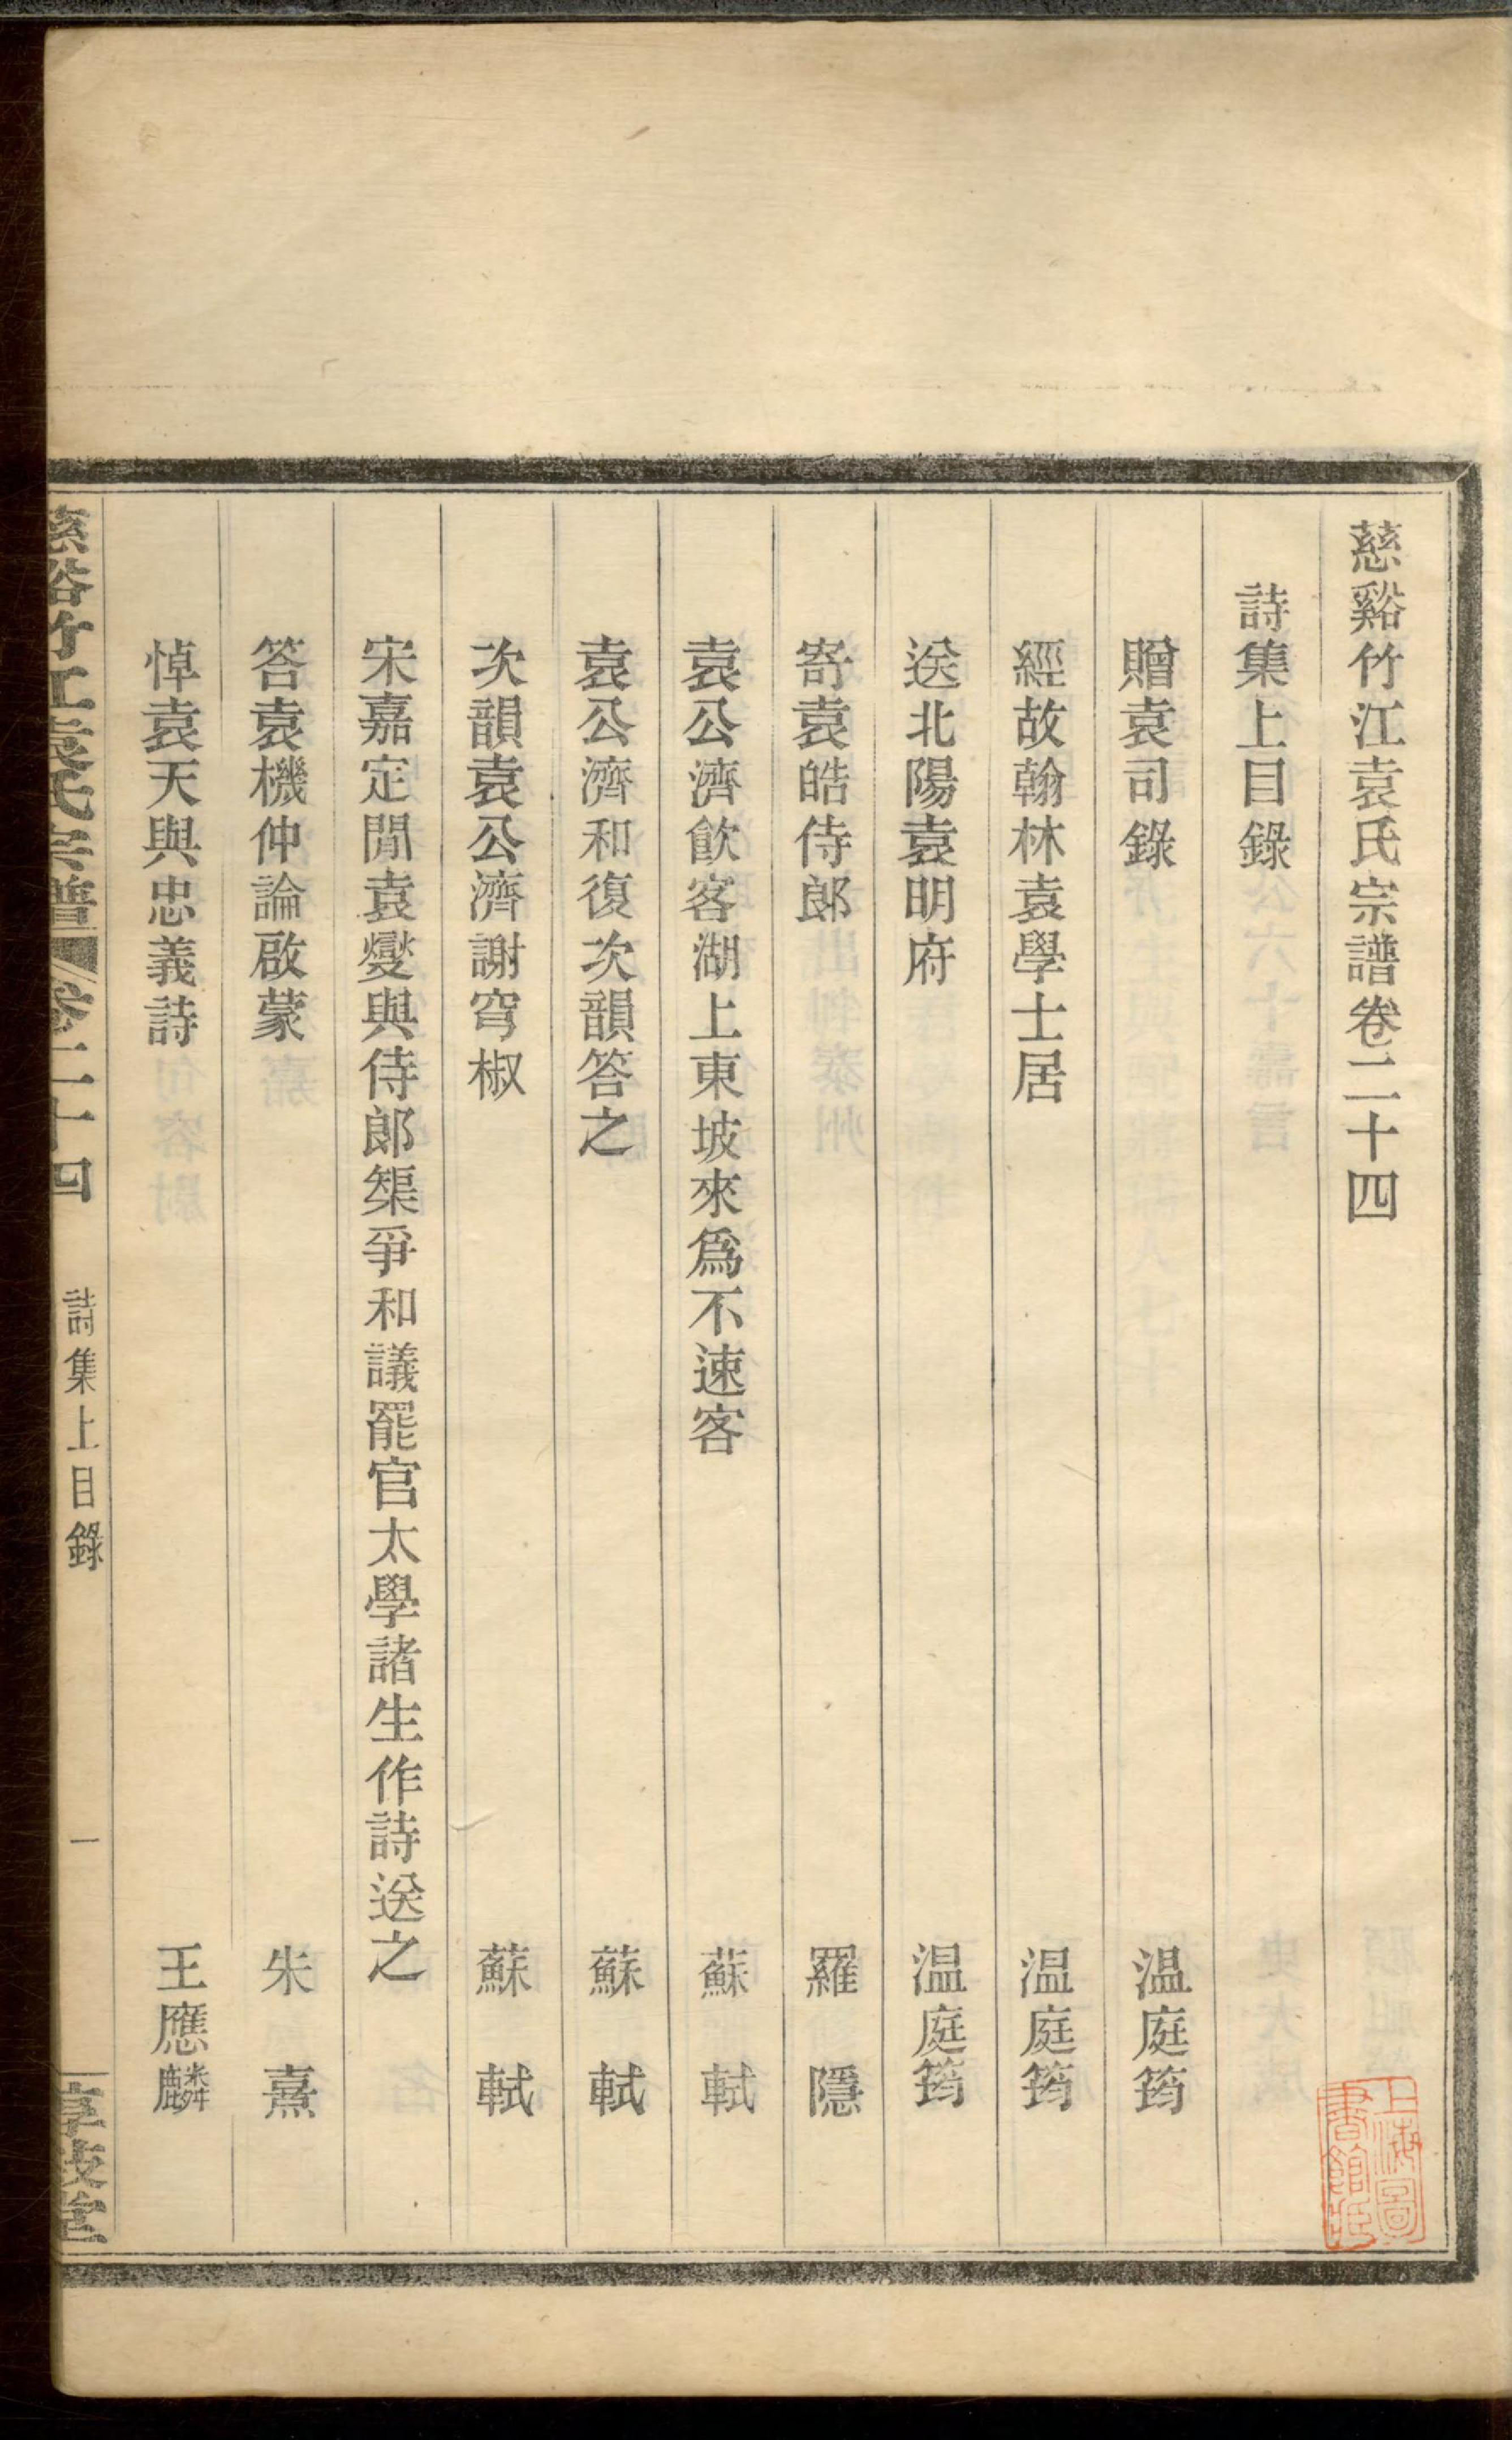 慈谿竹江袁氏宗譜卷二十四
詩集上目錄
贈袁司錄 温庭筠
經故翰林袁學士居 温庭筠
送北陽袁明府 温庭筠
寄袁皓侍郎 羅隱
袁公濟飮客湖上東坡來爲不速客 蘇軾
袁公濟和復次韻答之 蘇軾
次韻袁公濟謝穹椒 蘇軾
宋嘉定閒袁燮與侍郎榘爭和議罷官太學諸生作詩送之
答袁機仲論啟蒙 朱熹
悼袁天與忠義詩 王應麟
慈谿竹江袁氏宗譜 卷二十四 詩集上目錄 一
上海圖書館藏